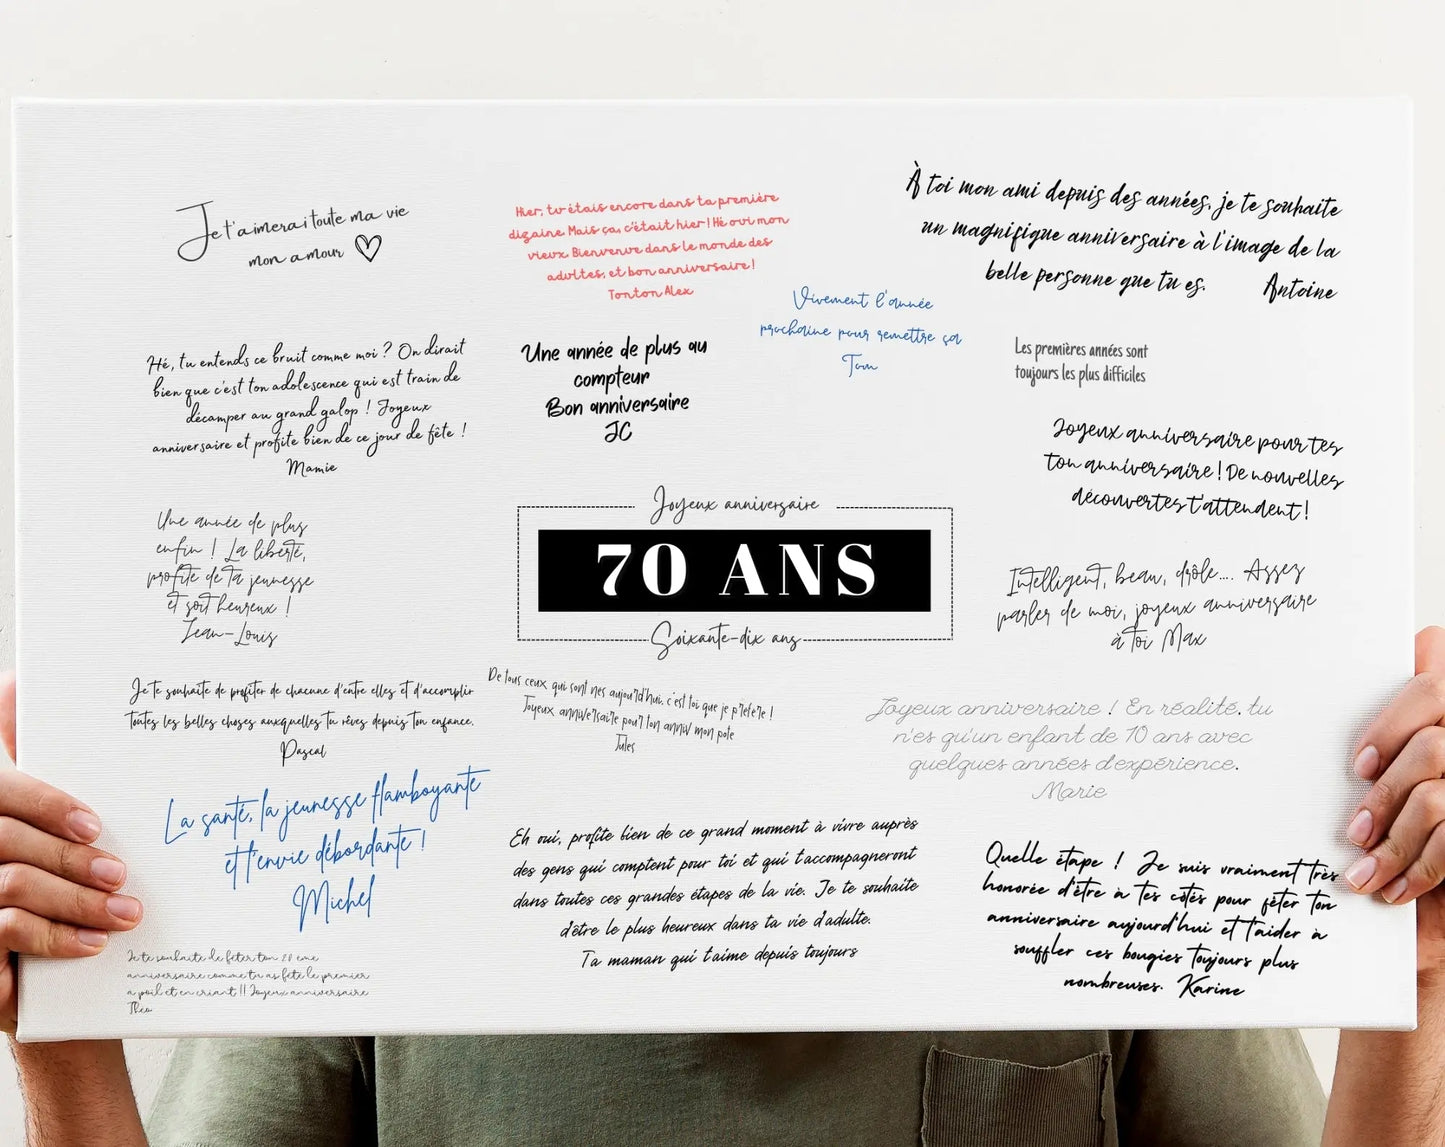 Je t'aimerai toute ma vie
mon amour
Hier, tu étais encore dans ta première
dizaine. Mais ça, c'était hier ! Hé oui mon
vieux. Bienvenue dans le monde des
adultes, et bon anniversaire !
Tonton Alex
À toi mon ami depuis des années, je te souhaite
un magnifique anniversaire à l'image de la
belle personne que tu es. Antoine
Vivement l'année
prochaine pour remettre ça
Tom
Hé, tu entends ce bruit comme moi ? On dirait
bien que c'est ton adolescence qui est train de
décamper au grand galop ! Joyeux
anniversaire et profite bien de ce jour de fête !
Mamie
Une année de plus au
compteur
Bon anniversaire
JC
Les premières années sont
toujours les plus difficiles
Joyeux anniversaire pour tes
ton anniversaire ! De nouvelles
découvertes t'attendent !
Une année de plus
enfin ! La liberté,
profite de ta jeunesse
et soit heureux !
Jean-Louis
Joyeux anniversaire
70 ANS
Soixante-dix ans
Intelligent, beau, drôle.... Assez
parler de moi, joyeux anniversaire
à toi Max
Je te souhaite de profiter de chacune d'entre elles et d'accomplir
toutes les belles choses auxquelles tu rêves depuis ton enfance.
Pascal
De tous ceux qui sont nes aujourd'hui, c'est toi que je préfère !
Joyeux anniversaire pour ton anniv mon pote
Jules
Joyeux anniversaire ! En réalité, tu
n'es qu'un enfant de 10 ans avec
quelques années d'expérience.
Marie
La santé, la jeunesse flamboyante
et l'envie débordante !
Michel
Eh oui, profite bien de ce grand moment à vivre auprès
des gens qui comptent pour toi et qui t'accompagneront
dans toutes ces grandes étapes de la vie. Je te souhaite
d'être le plus heureux dans ta vie d'adulte.
Ta maman qui t'aime depuis toujours
Quelle étape ! Je suis vraiment très
honorée d'être à tes côtés pour fêter ton
anniversaire aujourd'hui et t'aider à
souffler ces bougies toujours plus
nombreuses. Karine
Je te souhaite de fêter ton 20 eme
anniversaire comme tu as fêté le premier
a poil et en criant !! Joyeux anniversaire
Théo